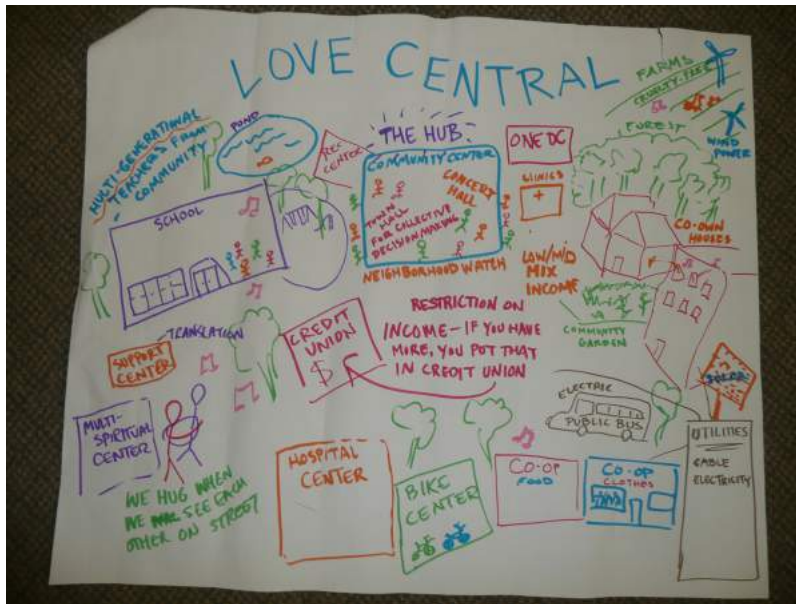 LOVE CENTRAL
FARMS
CRUELTY-FREE
WIND
POWER
FOREST
MULTI-GENERATIONAL
TEACHERS FROM
COMMUNITY
POND
REC
CENTER
THE HUB
COMMUNITY CENTER
CONCERT
HALL
TOWN
HALL
FOR COLLECTIVE
DECISION MAKING
NEIGHBORHOOD WATCH
ONE DC
CLINICS
+
CO-OWN
HOUSES
SCHOOL
LOW/MID
MIX
INCOME
COMMUNITY
GARDEN
TRANSLATION
SUPPORT
CENTER
CREDIT
UNION
$
RESTRICTION ON
INCOME - IF YOU HAVE
MORE, YOU PUT THAT
IN CREDIT UNION
SOLAR
ELECTRIC
PUBLIC BUS
UTILITIES
CABLE
ELECTRICITY
MULTI-
SPIRITUAL
CENTER
WE HUG WHEN
WE SEE EACH
OTHER ON STREET
HOSPITAL
CENTER
BIKE
CENTER
CO-OP
FOOD
CO-OP
CLOTHES